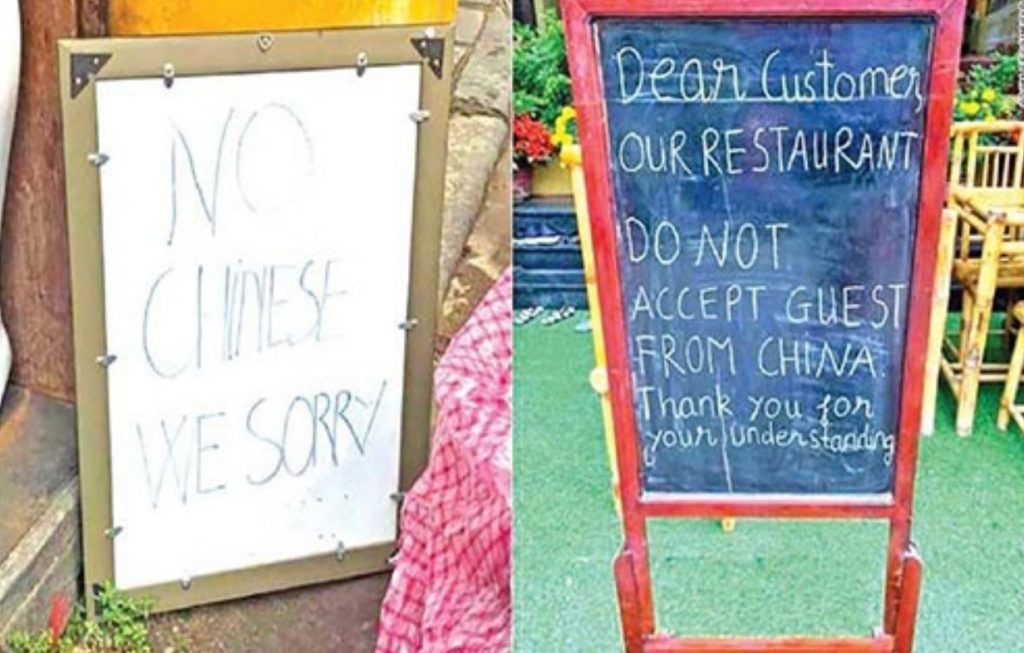 NO
CHINESE
WE SORRY
Dear Customer,
OUR RESTAURANT
DO NOT
ACCEPT GUEST
FROM CHINA.
Thank you for
your understanding